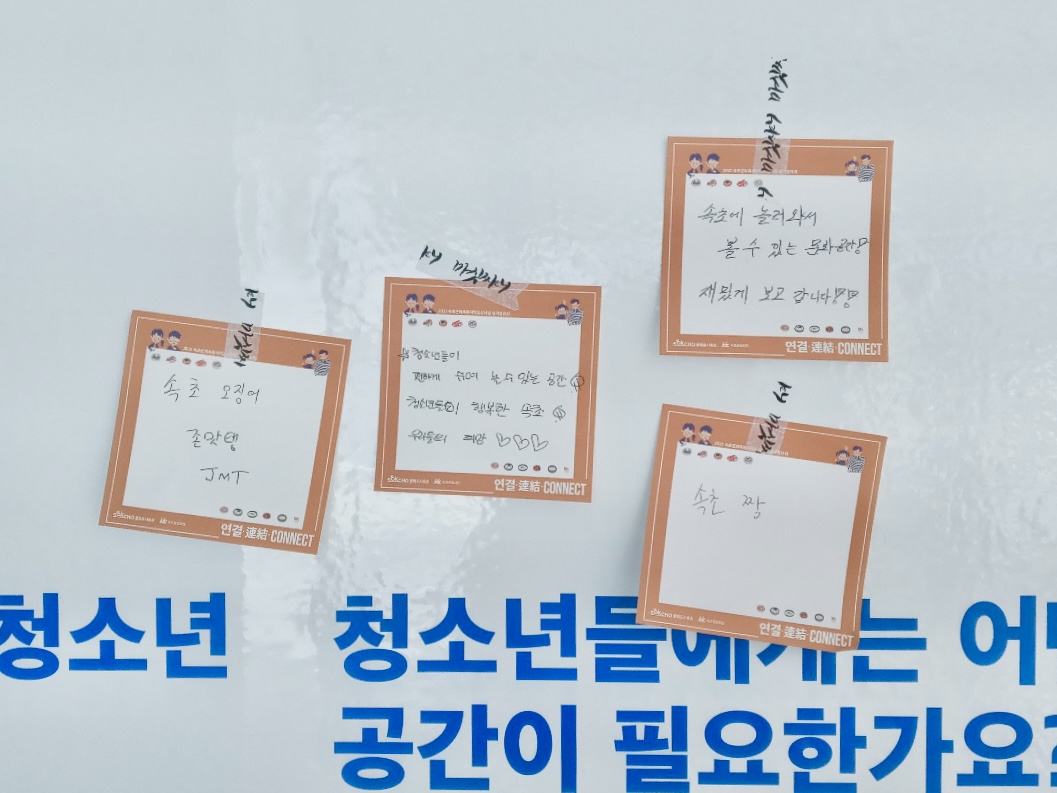 속초에 놀러와서
볼 수 있는 문화공간
재밌게 보고 갑니다!
연결·連結·CONNECT
청소년들이
편하게 쉬어 놀 수 있는 공간
청소년들이 행복한 속초
우리들의 희망
연결·連結·CONNECT
속초 오징어
존맛탱
JMT
연결·連結·CONNECT
속초 짱
연결·連結·CONNECT
청소년
청소년들에게는 어
공간이 필요한가요?